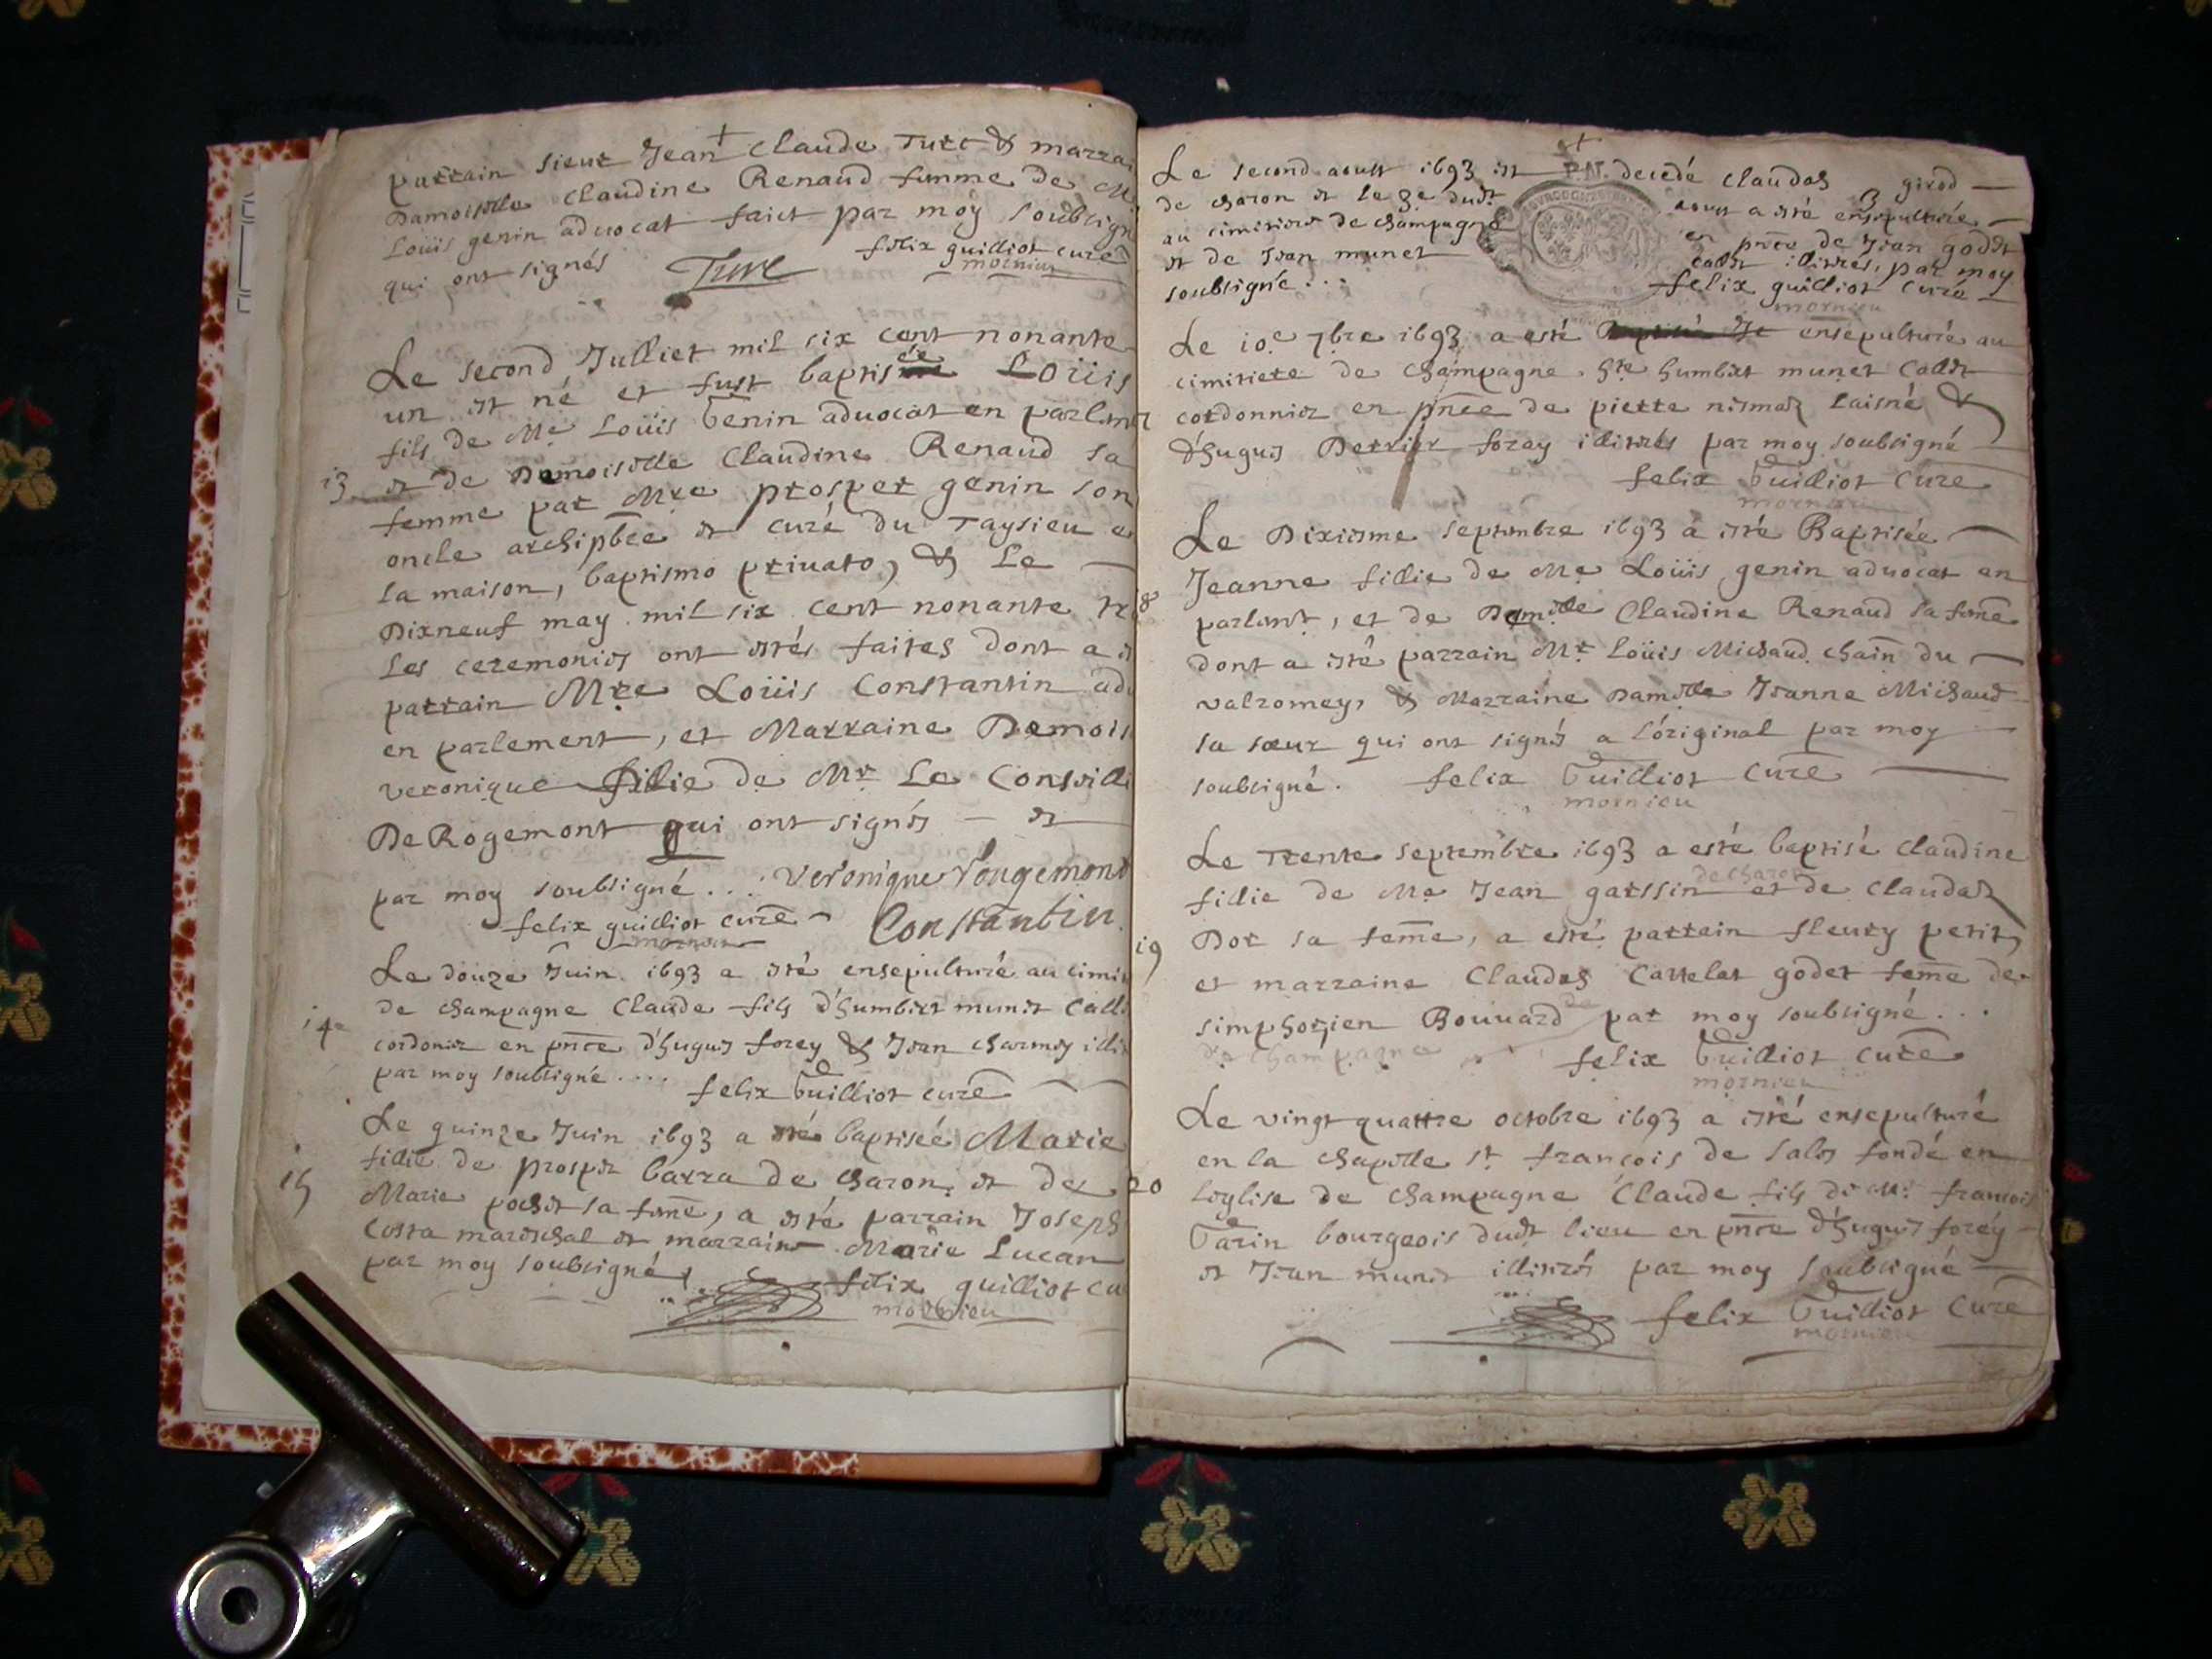 parrain sieur Jean Claude Turc & marrai
Damoiselle Claudine Renaud femme de Me
Loüis genin advocat faict par moy soubsign
qui ont signés Turc felix guilliot curé
mornieu
Le second Julliet mil six cent nonante
un est né et fust baptisé Loüis
fils de Me Loüis Genin advocat en parlmt
13 et de Damoiselle Claudine Renaud sa
femme par Mre prosper genin son
oncle archipbre et curé du Taysieu e
la maison, baptismo privato, & Le
Dixneuf may mil six cent nonante tr
Les ceremonies ont estés faites dont a e
parrain Mre Loüis Constantin adv
en parlement, et Marraine Demois
veronique fillie de Mr Le Conseille
De Rogemont qui ont signés et
par moy soubsigné... veronique Rougemont
felix guilliot curé Constantin
mornieu
Le douze Juin 1693 a esté ensepulturé au cimit
de champagne Claude fils d'humbert munet Calle
14e cordonier en pnce d'hugues forey & Jean charmes illit
par moy soubsigné.... felix Guilliot curé
Le quinze Juin 1693 a esté baptisée Marie
fillie de prosper barra de charon et de
15 Marie pochet sa feme, a esté parrain Joseph
Costa mareschal et marraine Marie Lucan
par moy soubsigné felix guilliot cu
mornieu
Le second aoust 1693 est P.N. decedé claudas girod
de charon et le 3e dudt aoust a esté ensepulturée
au cimitiere de champagne en pnce de Jean godet
et de Jean munet Callet illitrés, par moy
soubsigné... felix guilliot curé
mornieu
Le 10e 7bre 1693 a esté ensepulturé au
cimitiere de champagne hte humbert munet Callet
17 cordonnier en pnce de pierre nismaz laisné &
d'hugues Derrier foray illitrés par moy soubsigné
felix Guilliot Curé
mornieu
Le Dixiesme septembre 1693 a esté Baptisée
Jeanne fillie de Me Loüis genin advocat en
18 parlemt, et de Damlle Claudine Renaud sa feme
dont a esté parrain Mr Loüis Michaud chain du
valromey, & Marraine Damlle Jeanne Michaud
sa sœur qui ont signés a l'original par moy
soubsigné. felix Guilliot Curé
mornieu
Le Trente septembre 1693 a esté baptisé Claudine
de charon
fillie de Me Jean garssin et de Claudaz
19 Dor sa feme, a esté parrain fleury petit
et marraine Claudas Cattelat godet feme de
simphorien Bouvard par moy soubsigné...
de champagne felix Guilliot curé
mornieu
Le vingt quattre octobre 1693 a esté ensepulturé
en la chapelle st françois de sales fondé en
20 Leglise de champagne Claude fils de Mr françois
Garin bourgeois dudt lieu en pnce d'hugues forey
et Jean munet illitrés par moy soubsigné
felix Guilliot Curé
mornieu